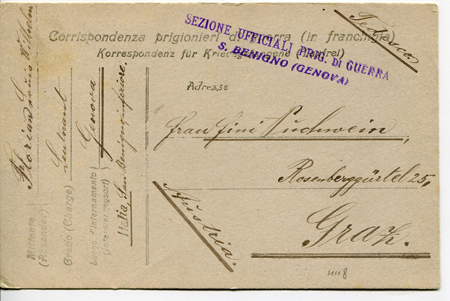 Corrispondenza prigionieri di guerra (in franchigia)
Korrespondenz für Kriegsgefangene (Portofrei)
Tedesca
SEZIONE UFFICIALI PRIG. DI GUERRA
S. BENIGNO (GENOVA)
Adresse
Frau Fini Puchwein,
Rosenberggürtel 25,
Graz.
Austria.
1118
Mittente
(Absender)
Florian
Grado (Charge)
Leutnant
Luogo d'Internamento
(Internierungsort)
Genova
Italia, San Benigno inferiore.